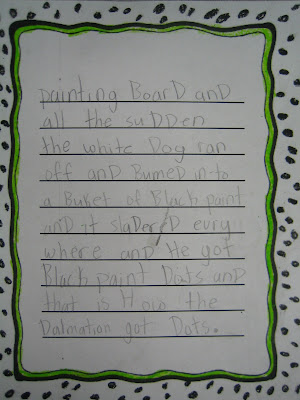 painting BoarD anD
all the suDDen
the white Dog ran
off anD BumeD in to
a Buket of Black paint
anD it slaDereD evry
where anD He got
Black paint Dots anD
that is How the
Dalmation got Dots.